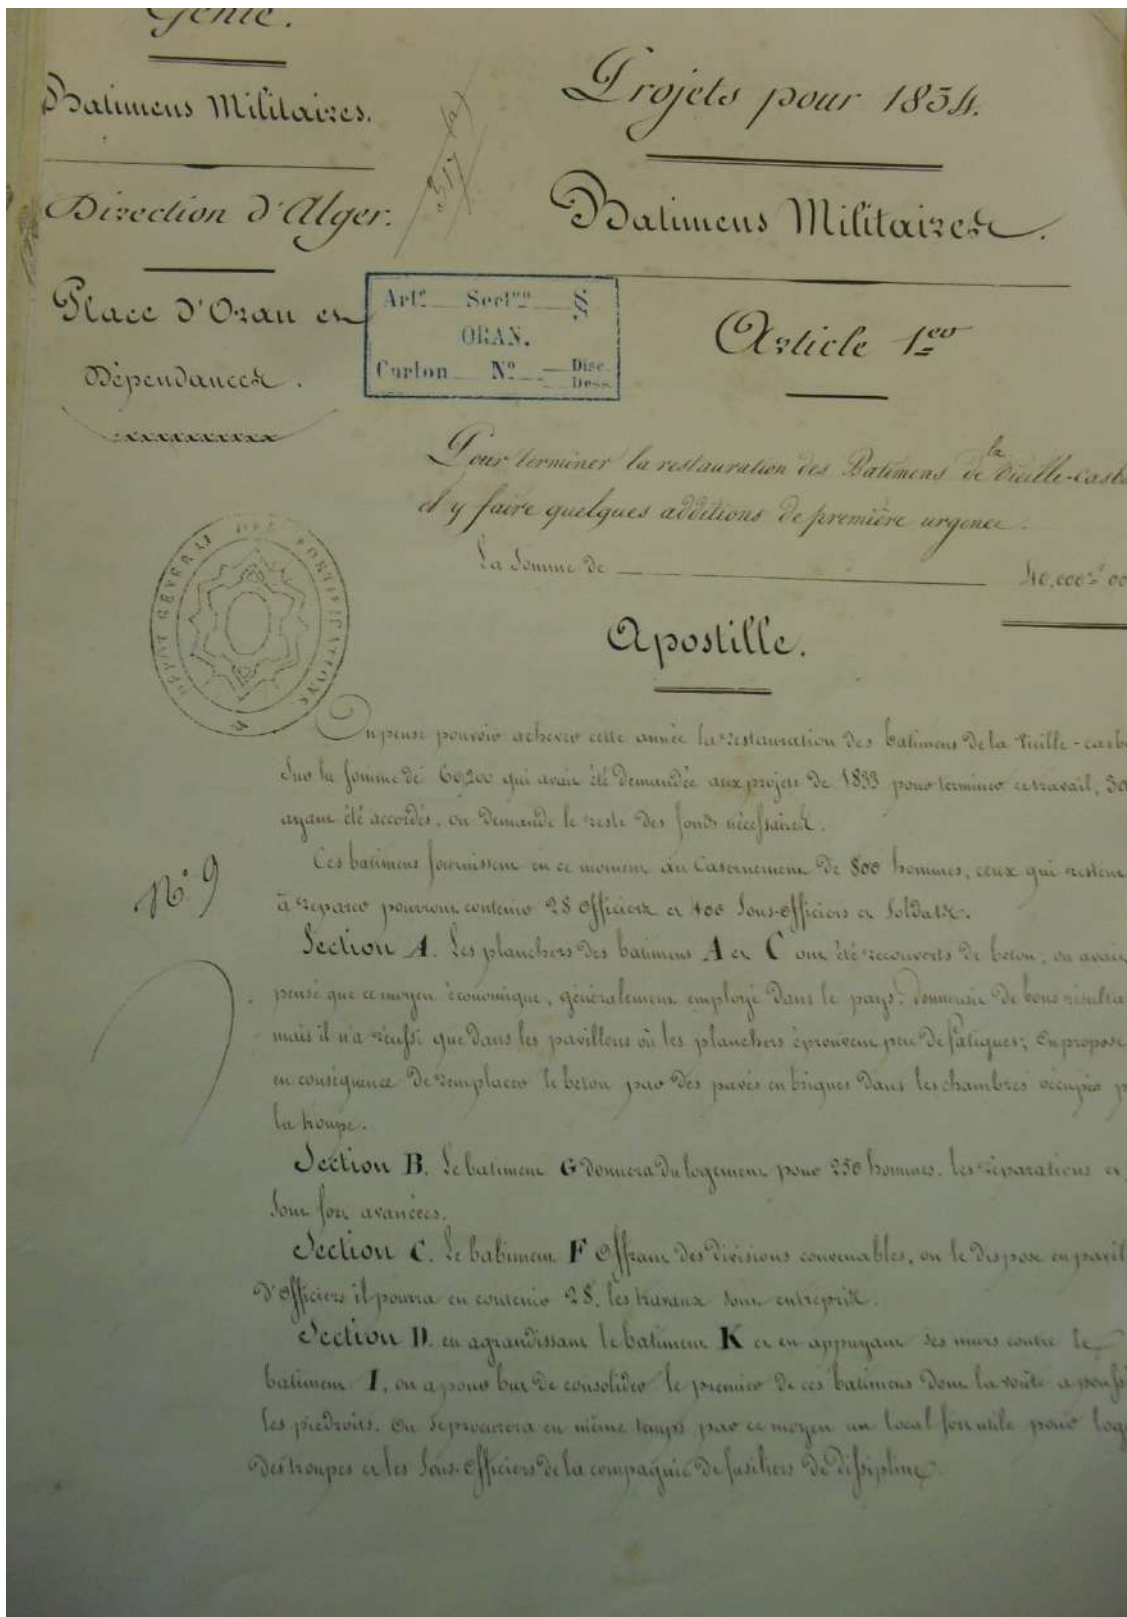 Génie.
Batimens Militaires.
Direction d'Alger.
Place d'Oran et
Dépendances.
317
Projets pour 1834.
Batimens Militaires.
Art.e Sect.on §
ORAN.
Carton N.o Disc.
Dess.
Article 1er
Pour terminer la restauration des Batimens de la Vieille-casb
et y faire quelques additions de première urgence.
La Somme de 40,000 f 00
DÉPÔT GÉNÉRAL DES FORTIFICATIONS
Apostille.
On pense pouvoir achever cette année la restauration des batimens de la Vieille-casb
Sur la somme de 60,200 qui avait été demandée aux projets de 1833 pour terminer ce travail, 30
ayant été accordés, on demande le reste des fonds nécessaires.
Ces batimens fournissent en ce moment au Casernement de 800 hommes, ceux qui restent
N.o 9
à réparer pourront contenir 28 Officiers et 400 Sous-Officiers et Soldats.
Section A. Les planchers des batimens A et C ont été recouverts de beton, on avait
pensé que ce moyen économique, généralement employé dans le pays, donnerait de bons résulta
mais il n'a réussi que dans les pavillons où les planchers éprouvent peu de fatigues; On propose
en conséquence de remplacer le beton par des pavés en briques dans les chambres occupées p
la troupe.
Section B. Le batiment G donnera du logement pour 250 hommes. les réparations
sont fort avancées.
Section C. Le batiment F Offrant des divisions convenables, on le dispose en pavil
d'Officiers il pourra en contenir 28. les travaux sont entrepris.
Section D. en agrandissant le batiment K et en appuyant ses murs contre le
batiment I, on a pour but de consolider le premier de ces batimens dont la voûte a pouss
les piedroits. On se procurera en même temps par ce moyen un local fort utile pour log
des troupes et les Sous-Officiers de la compagnie de fusiliers de dissipline.